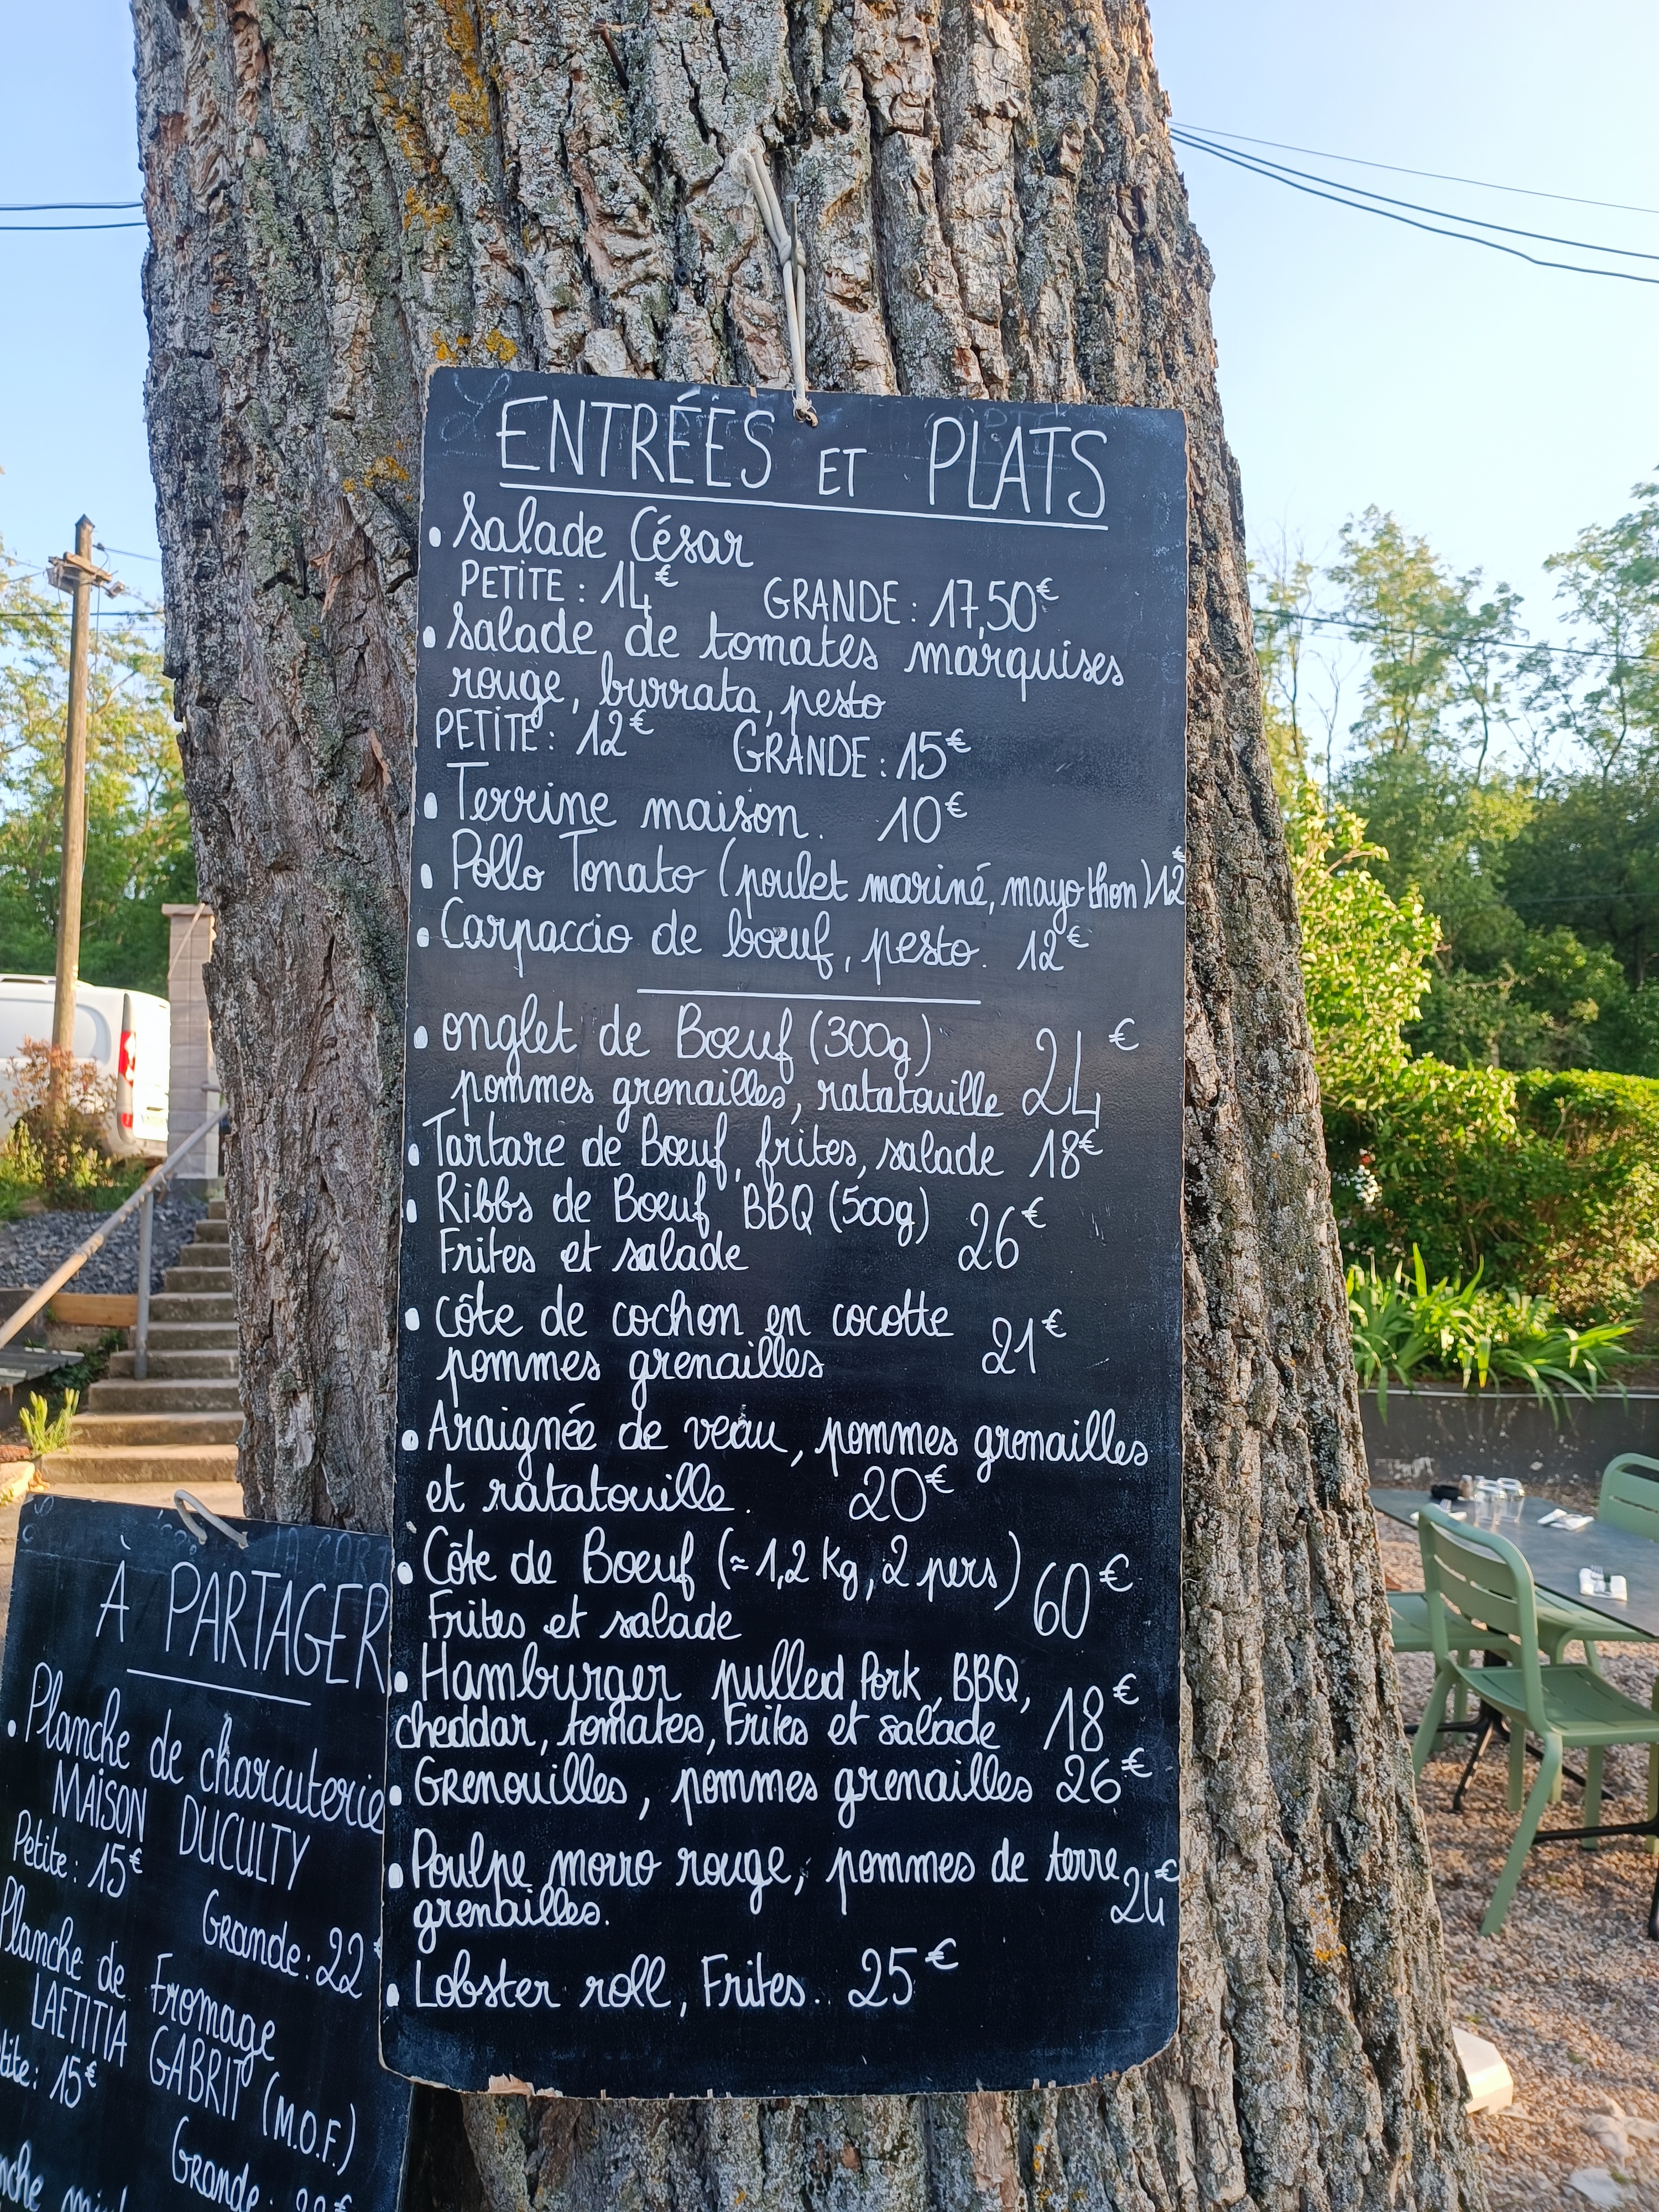 ENTRÉES ET PLATS
• Salade César
PETITE : 14€ GRANDE : 17,50€
• Salade de tomates marquises
rouge, burrata, pesto
PETITE : 12€ GRANDE : 15€
• Terrine maison. 10€
• Pollo Tonato (poulet mariné, mayo thon) 12€
• Carpaccio de bœuf, pesto. 12€
• onglet de Bœuf (300g) 24€
pommes grenailles, ratatouille
• Tartare de Bœuf, frites, salade 18€
• Ribbs de Bœuf BBQ (500g) 26€
Frites et salade
• côte de cochon en cocotte 21€
pommes grenailles
• Araignée de veau, pommes grenailles
et ratatouille. 20€
• Côte de Bœuf (≈ 1,2 Kg, 2 pers) 60€
Frites et salade
• Hamburger pulled Pork, BBQ,
cheddar, tomates, Frites et salade 18€
• Grenouilles, pommes grenailles 26€
• Poulpe morro rouge, pommes de terre
grenailles. 24€
• Lobster roll, Frites. 25€
À PARTAGER
• Planche de charcuterie
MAISON DUCULTY
Petite : 15€
Grande : 22€
Planche de Fromage
LAETITIA GABRIT (M.O.F.)
15€
Grande :